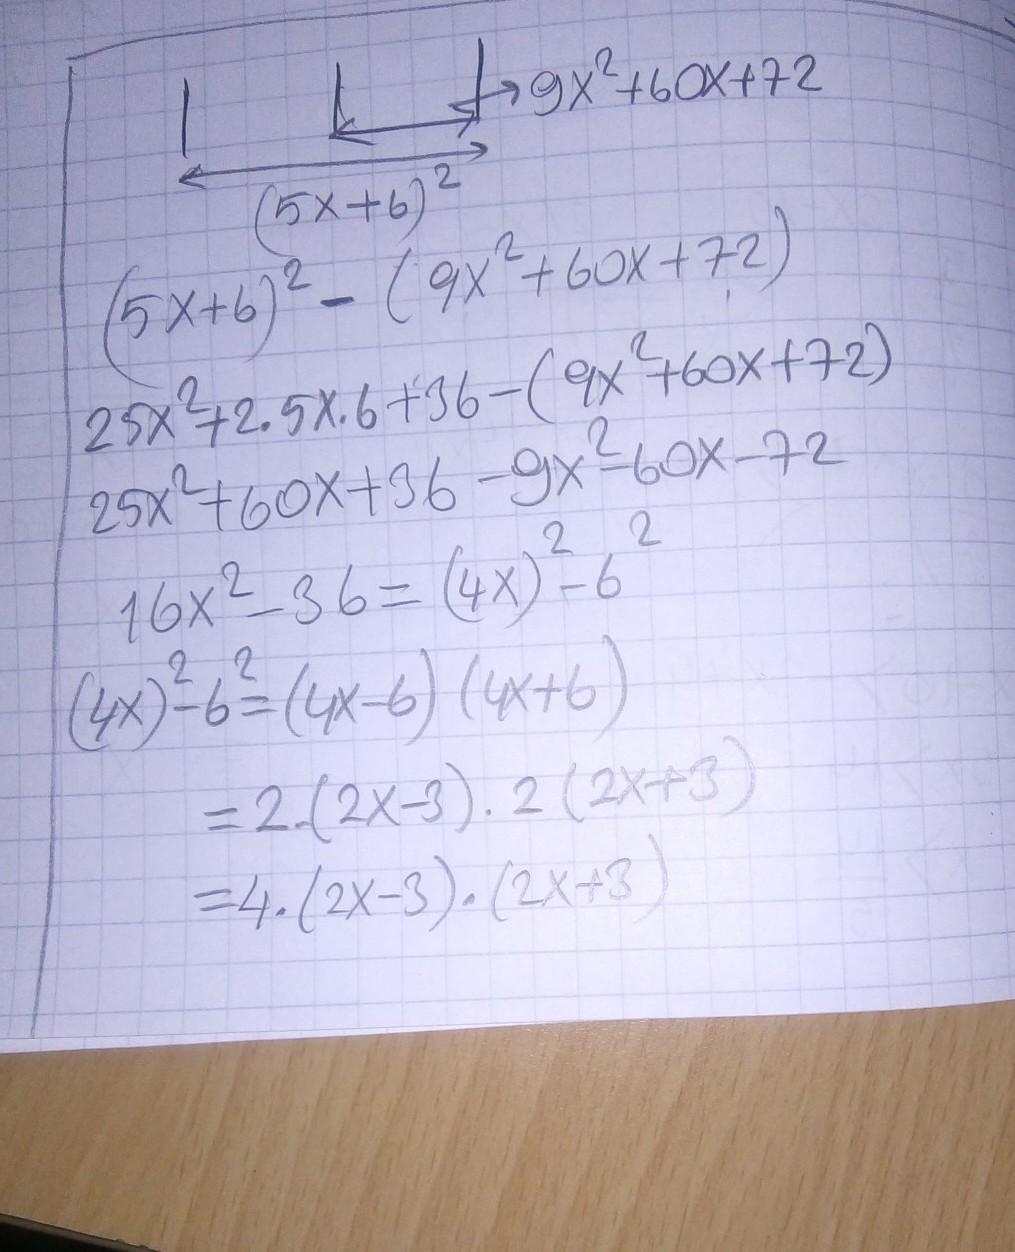 9x²+60x+72
(5x+6)²
(5x+6)² - (9x²+60x+72)
25x²+2.5x.6+36-(9x²+60x+72)
25x²+60x+36-9x²-60x-72
16x²-36=(4x)²-6²
(4x)²-6²=(4x-6)(4x+6)
=2.(2x-3).2(2x+3)
=4.(2x-3).(2x+3)